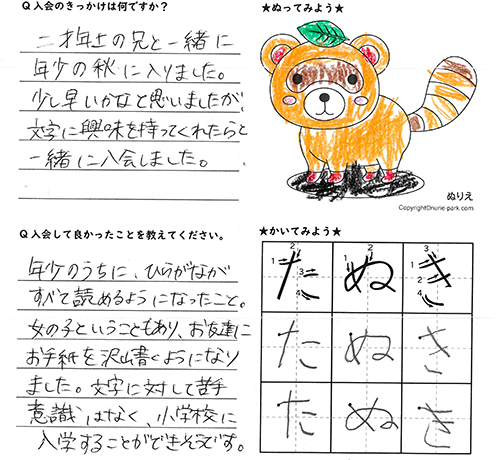 Q 入会のきっかけは何ですか？
二才年上の兄と一緒に
年少の秋に入りました。
少し早いかなと思いましたが、
文字に興味を持ってくれたらと
一緒に入会しました。
★ぬってみよう★
ぬりえ
Copyright©nurie-park.com
Q 入会して良かったことを教えてください。
年少のうちに、ひらがなが
すべて読めるようになったこと。
女の子ということもあり、お友達に
お手紙を沢山書くようになり
ました。文字に対して苦手
意識はなく、小学校に
入学することができそうです。
★かいてみよう★
1 2 3 4 1 2 1 2 3 4
た ぬ き
た ぬ き
た ぬ き